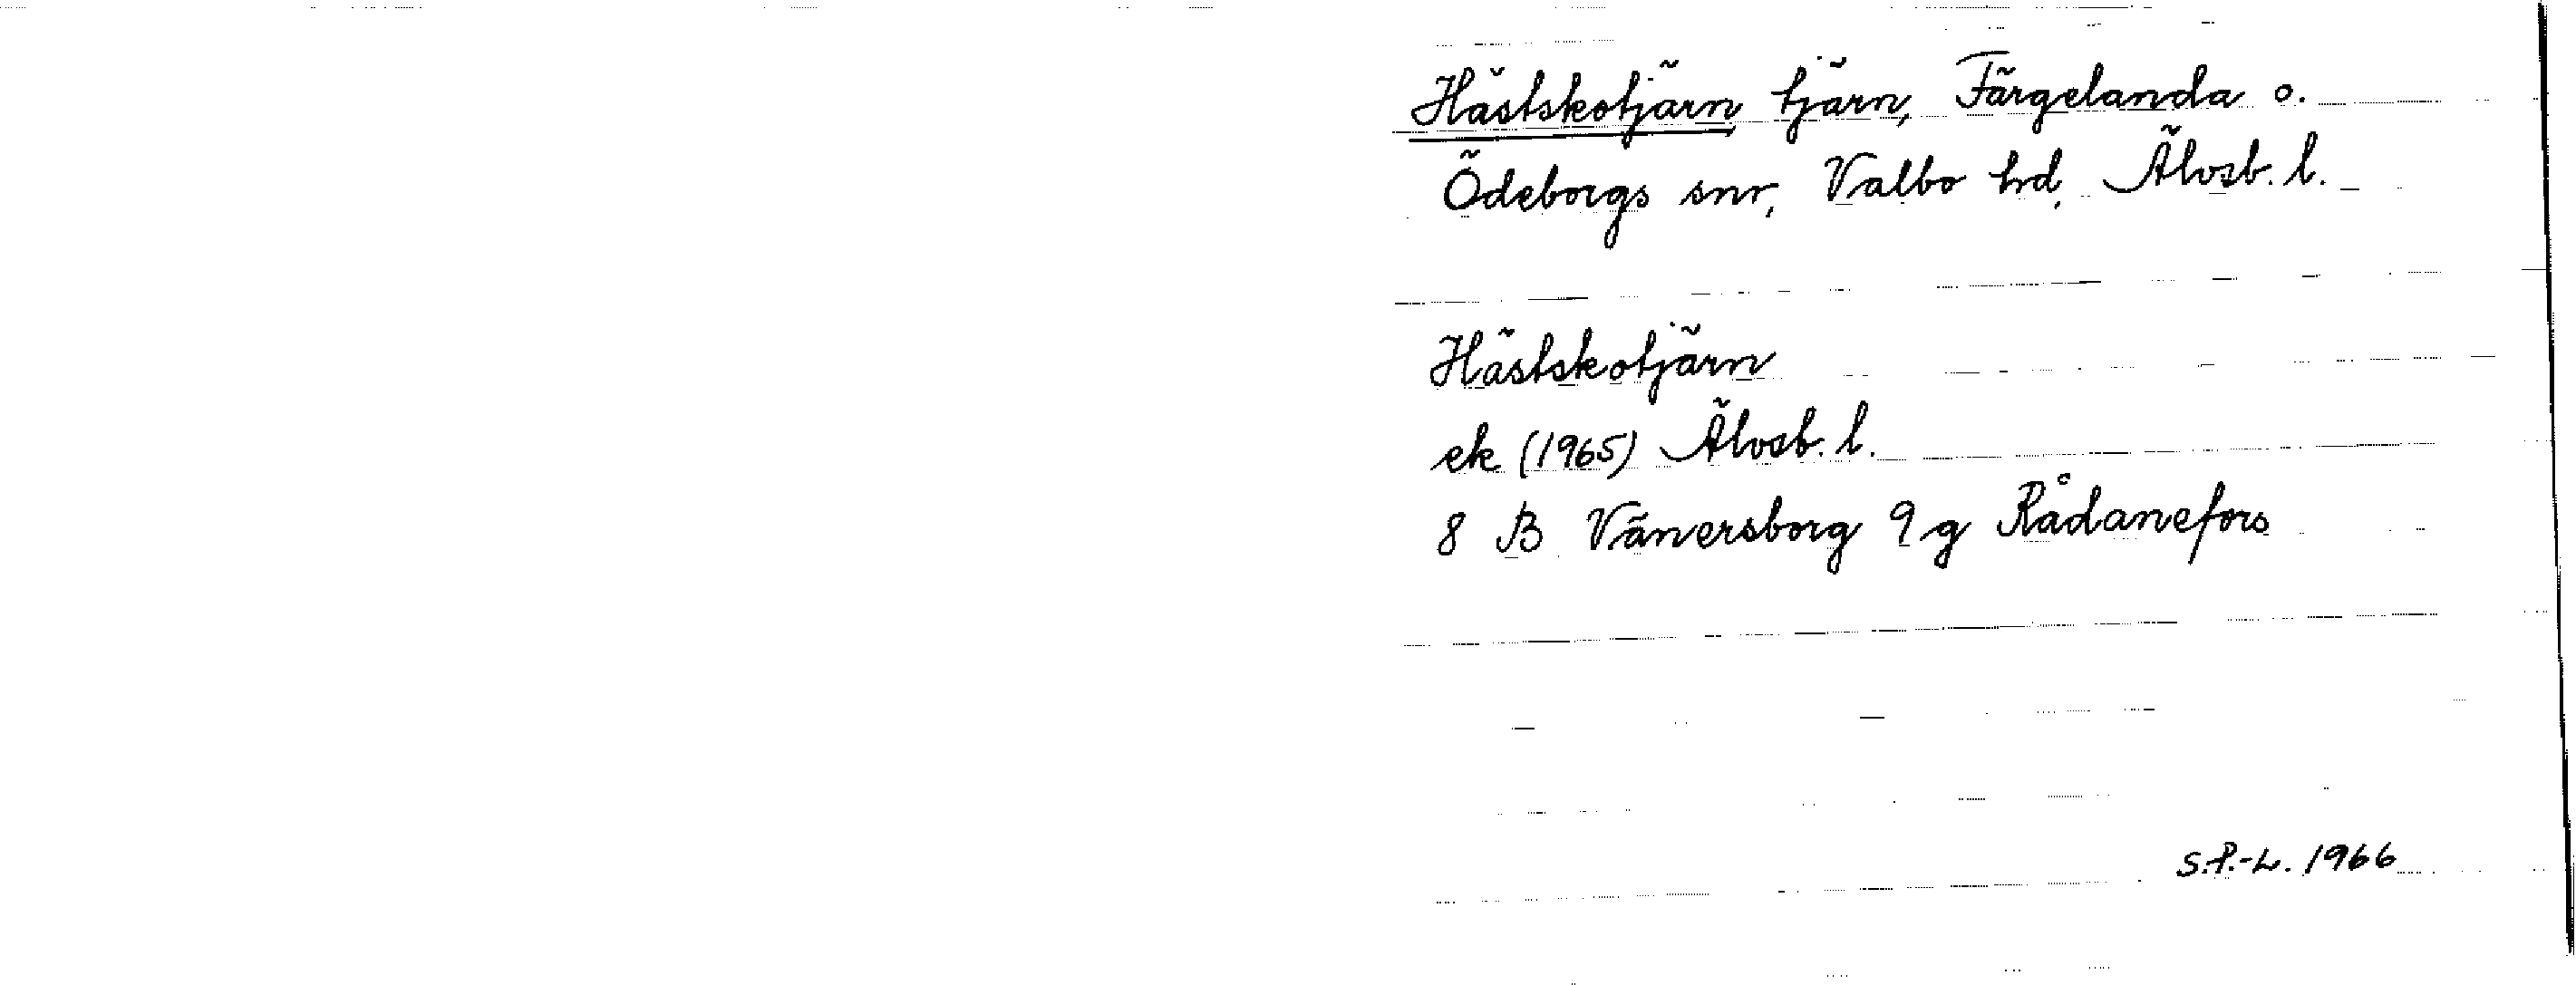 Hästskotjärn tjärn, Färgelanda o.
Ödeborgs snr, Valbo hd, Älvsb. l.
Hästskotjärn
ek (1965) Älvsb. l.
8 B Vänersborg 9 g Rådanefors
S.P.-L. 1966